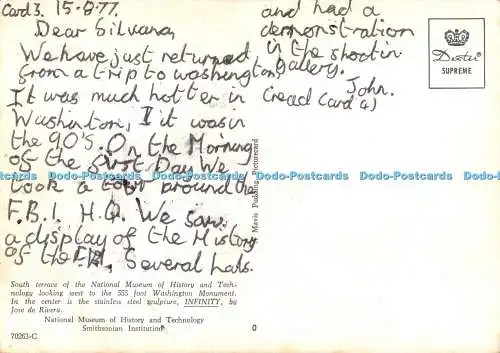 Card 3. 15-8-77.
Dear Silvana,
We have just returned
from a trip to washington,
It was much hotter in
Washinton, I it was in
the 90's. On the Morning
of the first Day We
took a tour around the
F.B.I. H.Q. We saw
a display of the History
of the F.B.I, Several labs.
and had a
demonstration
in the shootin
gallery.
John.
(read Card 4)
Dexter
SUPREME
Mavis Publishing Picturecard
Dodo-Postcards Dodo-Postcards Dodo-Postcards Dodo-Postcards Dodo-Postcards
South terrace of the National Museum of History and Tech-
nology looking west to the 555 foot Washington Monument.
In the center is the stainless steel sculpture, INFINITY, by
Jose de Rivera.
National Museum of History and Technology
Smithsonian Institution
70263-C
0